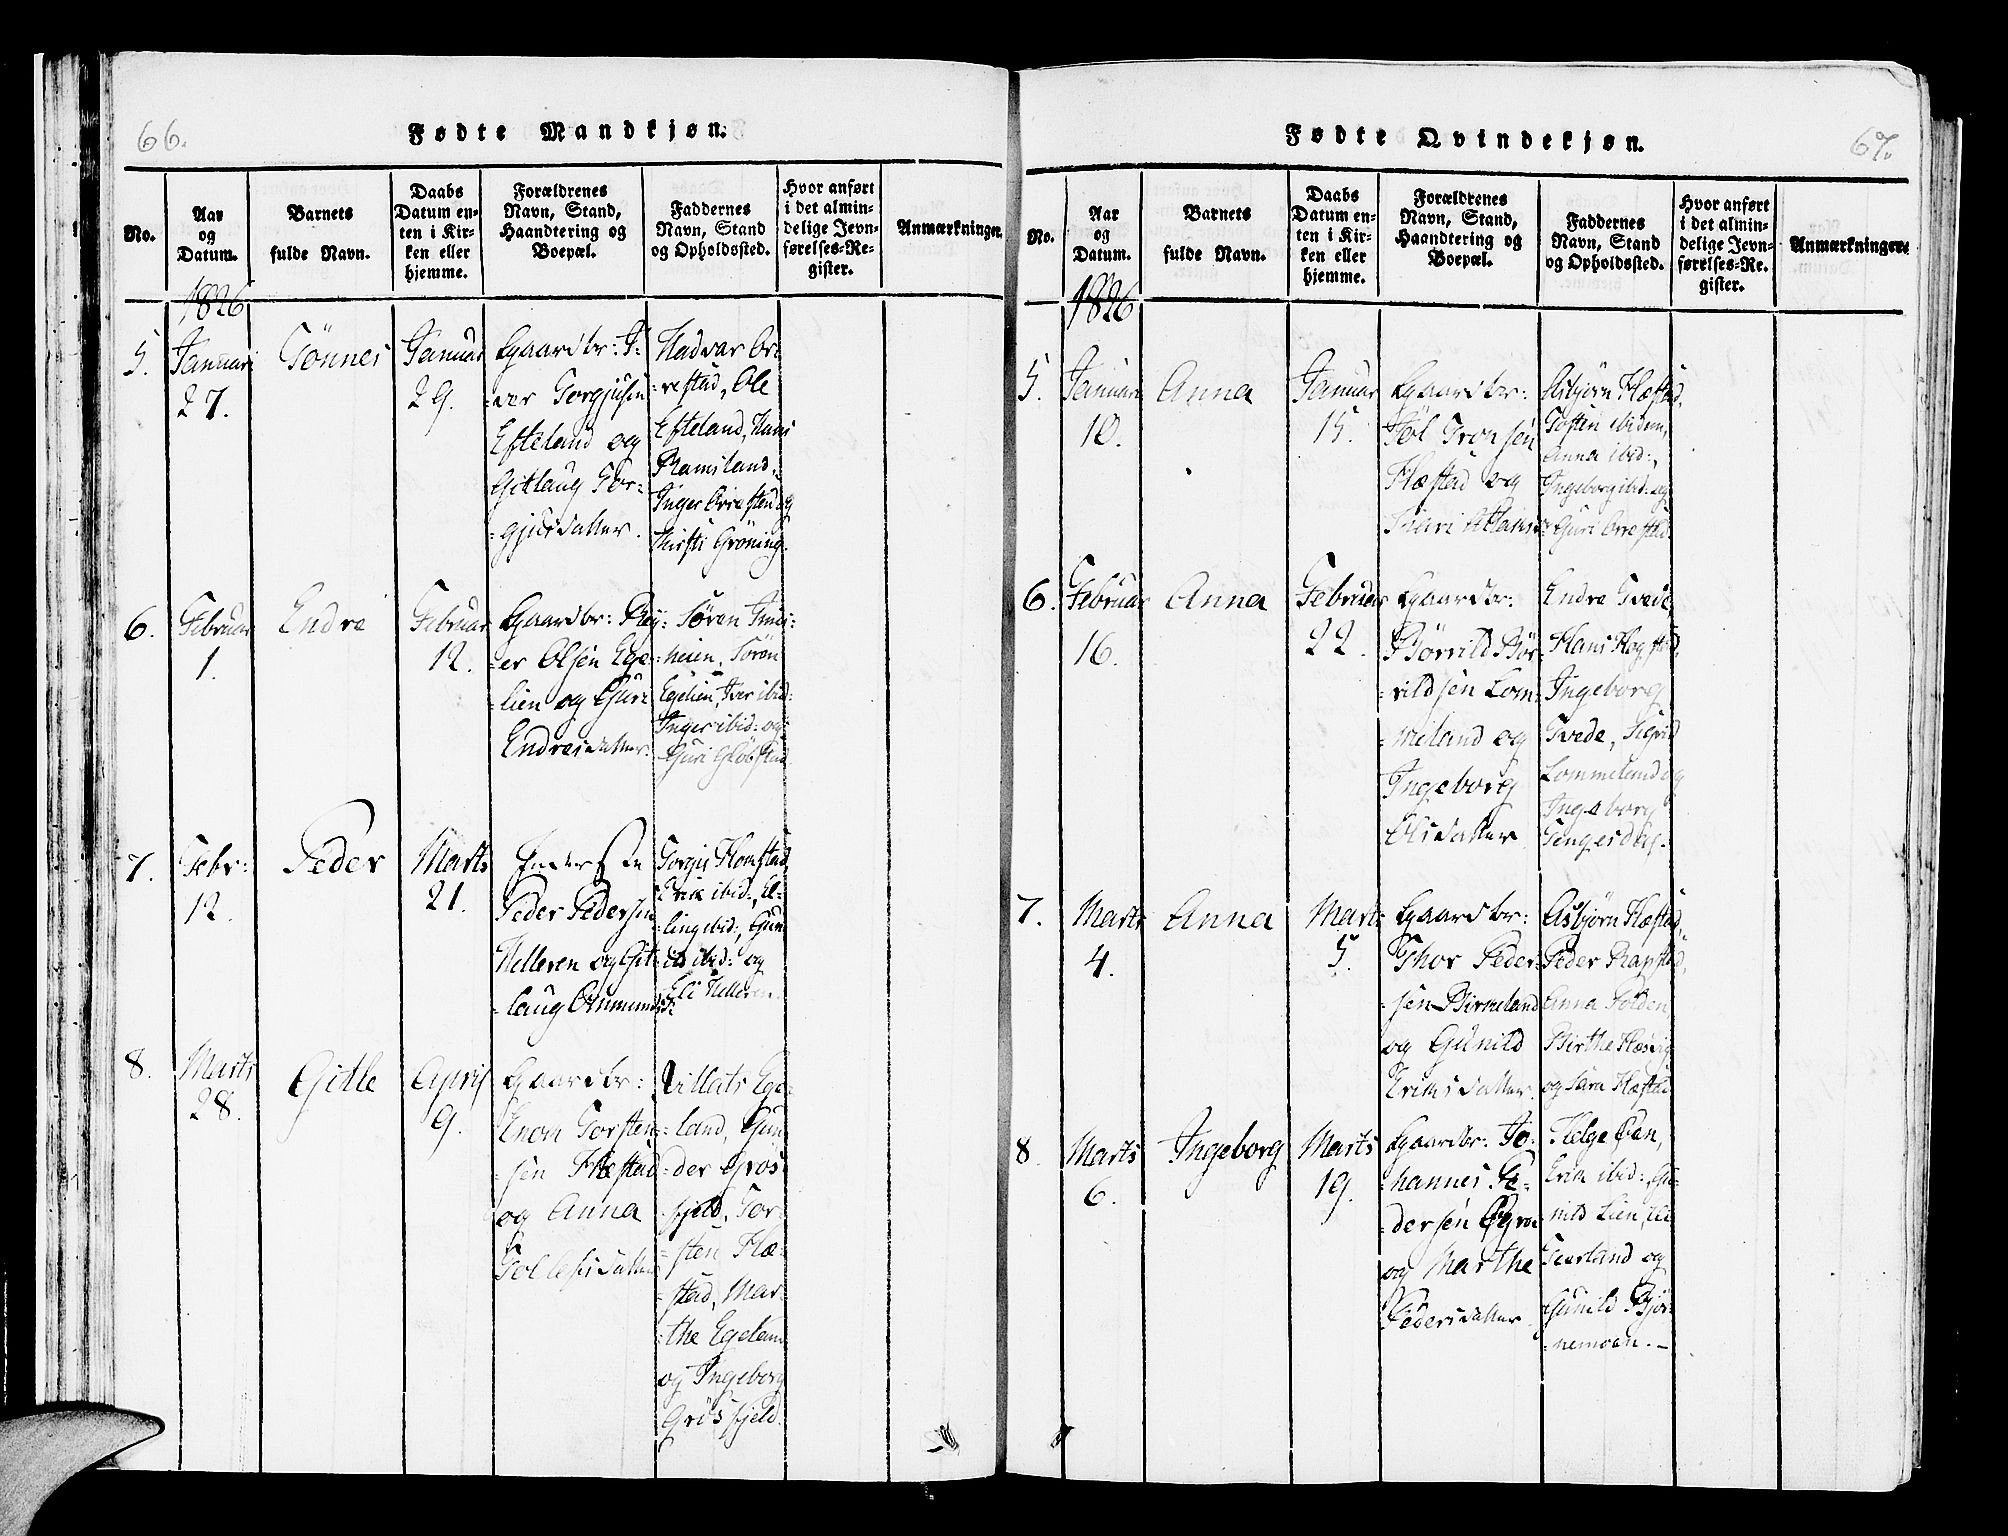 66.
Fødte Mandkjøn.
No.
Aar
og
Datum.
Barnets
fulde Navn.
Daabs
Datum en-
ten i Kir-
ken eller
hjemme.
Forældrenes
Navn, Stand,
Haandtering og
Boepæl.
Faddernes
Navn, Stand
og Opholdssted.
Hvor anført
i det almin-
delige Jevn-
førelses-Re-
gister.
Anmærkninger.
1826
5.
Januari
27.
Tönnes
Januar
29.
Gaardbr: I-
-ver Torgjusen
Efteland og
Gitlaug Tor-
-gjusdatter.
Hadvar Or-
-restad, Ole
Efteland, Hans
Ramsland,
Inger Orrestad og
Kirsti Gröning.
6.
Februar
1.
Endre
Februar
12.
Gaardbr: Rei-
-er Olsen Ege-
-lien og Guri
Endresdatter.
Sören
-heien, Sören
Egelien, Iver ibid:
Inger ibid: og
Guri
7.
Febr:
12.
Peder
Marts
21.
Inderste
Peder Pedersen
Helleren og Git-
-laug Ommundsd:
Torgiis Homstad,
Erik ibid:, El-
-ling ibid:, Gun-
ibid: og
Eli Helleren.
8.
Marts
28.
Gitle
April
9.
Gaardbr:
Enom Torsten-
-sen Flæstad
og Anna
Tollefsdatter
Villats Ege-
-land, Gun-
-der Gros-
-fjeld, Tor-
-sten Flæ-
-stad, Mar-
-the Egeland
og Ingeborg
Grösfjeld.
67.
Fødte Qvindekjøn.
No.
Aar
og
Datum.
Barnets
fulde Navn.
Daabs
Datum en-
ten i Kir-
ken eller
hjemme.
Forældrenes
Navn, Stand,
Haandtering og
Boepæl.
Faddernes
Navn, Stand
og Opholdssted.
Hvor anført
i det almin-
delige Jevn-
førelses-Re-
gister.
Anmærkninger.
1826
5.
Januari
10.
Anna
Januar
15.
Gaardbr:
Tronsen
Flæstad og
Siri
Asbjörn Flæstad,
Tosten ibidem,
Anna ibid:,
Ingeborg ibid: og
Guri Orrestad.
6.
Februar
16.
Anna
Februar
22.
Gaardbr:
Börrild Bör-
-rildsen Lom-
-meland og
Ingeborg
Elisdatter
Endre Tvede,
Hans Flogstad,
Ingeborg
Tvede, Sigrid
Lommeland og
Ingeborg
Tengesdal.
7.
Marts
4.
Anna
Marts
5.
Gaardbr:
Thor Peder-
-sen Birkeland
og Gunild
Eriksdatter.
Asbjörn Flæstad,
Peder Rapstad,
Anna Solden,
Birthe
og Sara Flæstad
8.
Marts
6.
Ingeborg
Marts
19.
Gaardbr: Jo-
-hannes Pe-
-dersen
og Marthe
Pedersdatter.
Helge Öen,
Erik ibid:, Gu-
-nild Lien,
og
Gunild Björ-
-nemoen. -